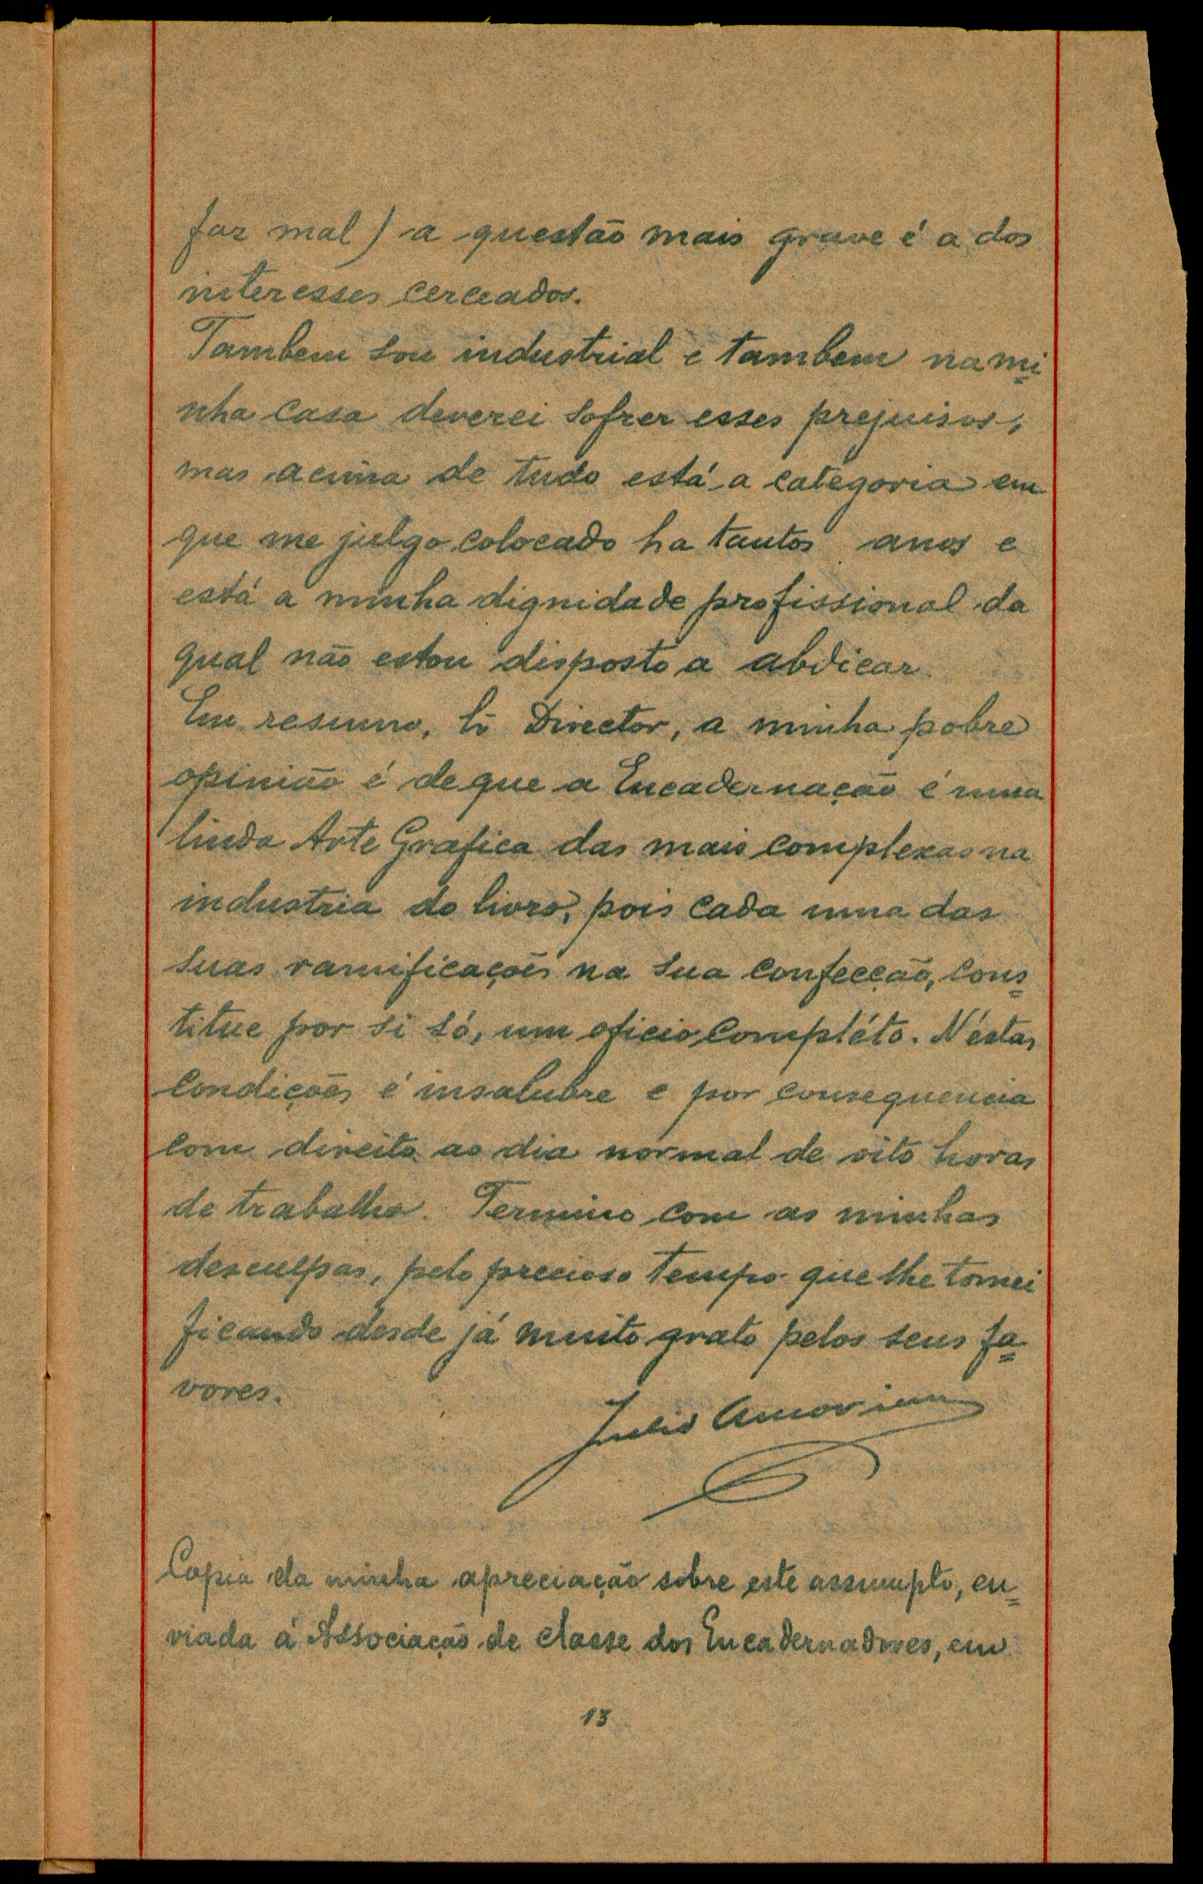 faz mal) a questão mais grave é a dos
interesses cerceados.
Tambem sou industrial e tambem na mi=
nha casa deverei sofrer esses prejuisos,
mas acima de tudo está a categoria em
que me julgo colocado ha tantos anos e
está a minha dignidade profissional da
qual não estou disposto a abdicar.
Em resumo, Sr Director, a minha pobre
opinião é de que a Encadernação é uma
linda Arte Grafica das mais complexas na
industria do livro, pois cada uma das
suas ramificações na sua confecção, cons=
titue por si só, um oficio compléto. Néstas
condições é insalubre e por consequencia
com direito ao dia normal de oito horas
de trabalho. Termino com as minhas
desculpas, pelo precioso tempo que lhe tomei
ficando desde já muito grato pelos seus fa=
vores.
Julio Amorim
Copia da minha apreciação sobre este assumpto, en=
viada á Associação de classe dos Encadernadores, em
13